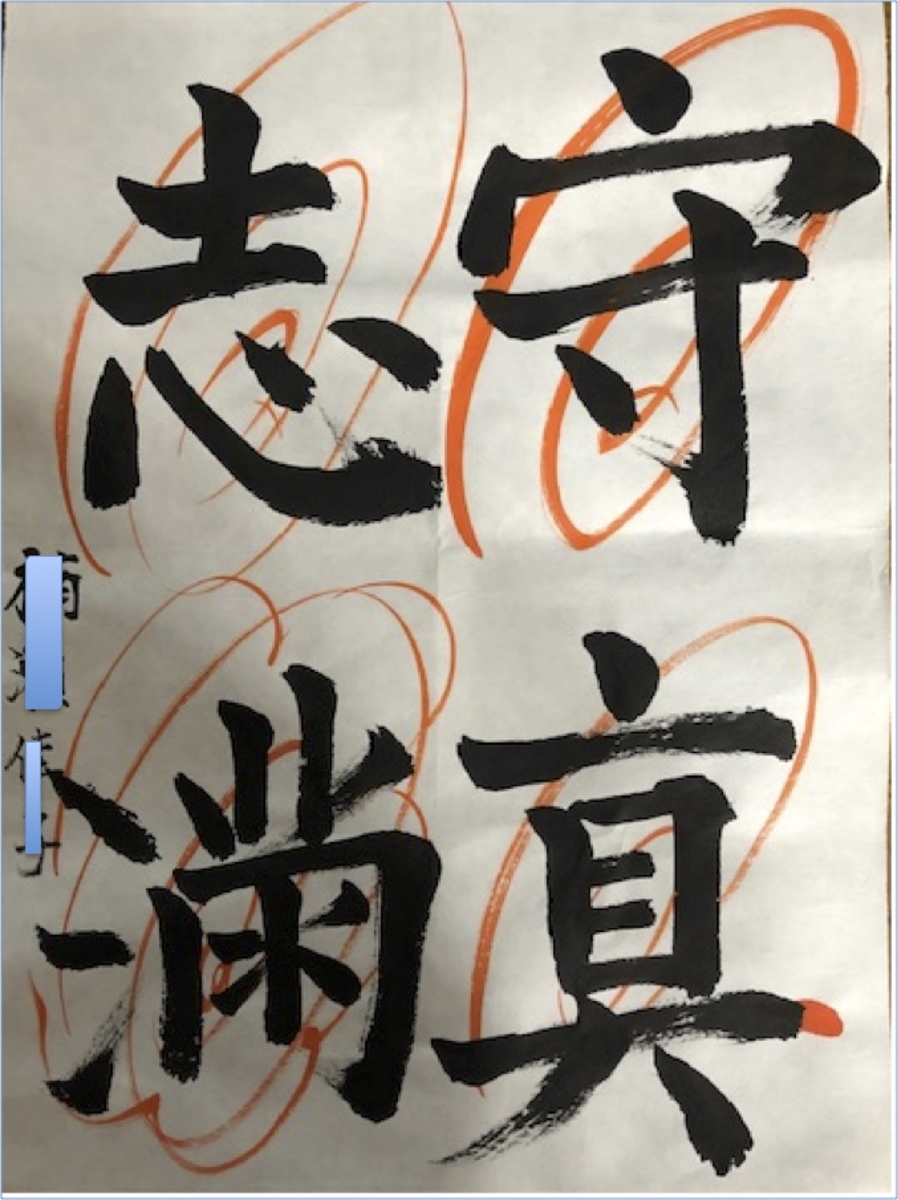 守真
志満